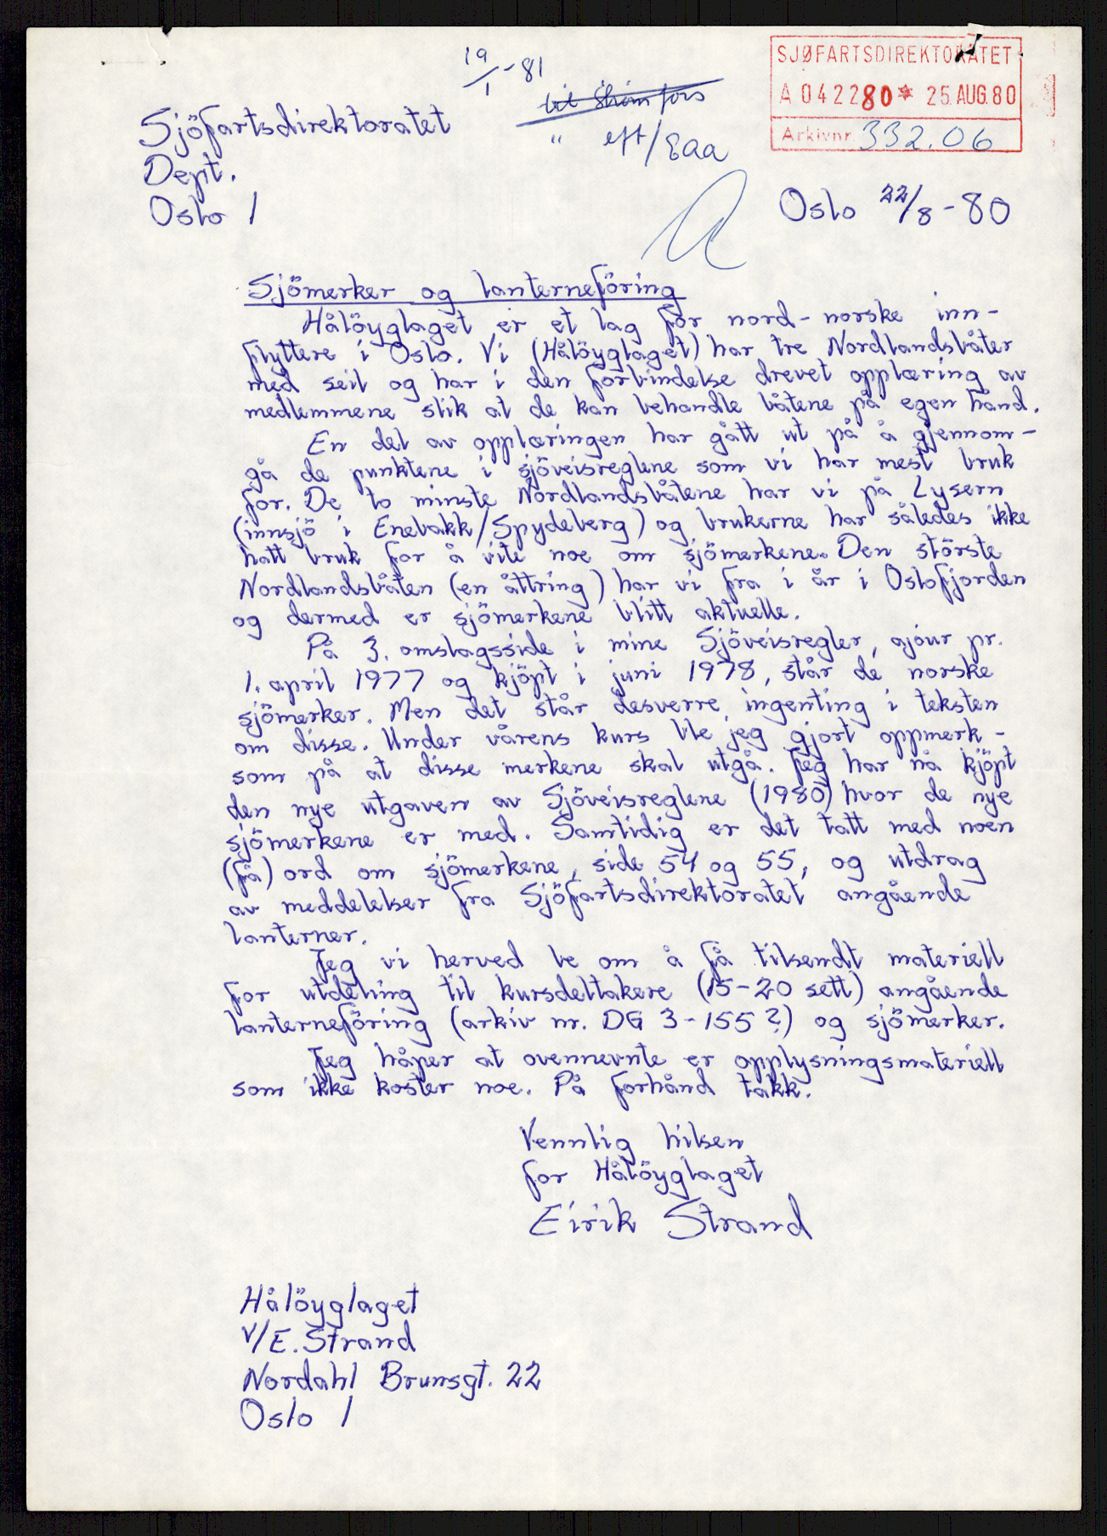 19/1-81
SJØFARTSDIREKTORATET
A 042280* 25.AUG.80
Arkivnr. 332.06
" eft/Eaa
Sjöfartsdirektoratet
Dept.
Oslo 1
Oslo 22/8-80
Sjömerker og lanterneföring
Hålöyglaget er et lag for nord-norske inn-
flyttere i Oslo. Vi (Hålöyglaget) har tre Nordlandsbåter
med seil og har i den forbindelse drevet opplæring av
medlemmene slik at de kan behandle båtene på egen hånd.
En del av opplæringen har gått ut på å gjennom-
gå de punktene i sjöveisreglene som vi har mest bruk
for. De to minste Nordlandsbåtene har vi på Lysern
(innsjö i Enebakk/Spydeberg) og brukerne har således ikke
hatt bruk for å vite noe om sjömerkene. Den störste
Nordlandsbåten (en åttring) har vi fra i år i Oslofjorden
og dermed er sjömerkene blitt aktuelle.
På 3. omslagsside i mine Sjöveisregler, ajour pr.
1. april 1977 og kjöpt i juni 1978, står de norske
sjömerker. Men det står desverre ingenting i teksten
om disse. Under vårens kurs ble jeg gjort oppmerk-
som på at disse merkene skal utgå. Jeg har nå kjöpt
den nye utgaven av Sjöveisreglene (1980) hvor de nye
sjömerkene er med. Samtidig er det tatt med noen
(få) ord om sjömerkene, side 54 og 55, og utdrag
av meddelelser fra Sjöfartsdirektoratet angående
lanterner.
Jeg vi herved be om å få tilsendt materiell
for utdeling til kursdeltakere (15-20 sett) angående
lanterneföring (arkiv nr. DG 3-155?) og sjömerker.
Jeg håper at ovennevnte er opplysningsmateriell
som ikke koster noe. På forhånd takk.
Vennlig hilsen
for Hålöyglaget
Eirik Strand
Hålöyglaget
v/E. Strand
Nordahl Brunsgt. 22
Oslo 1